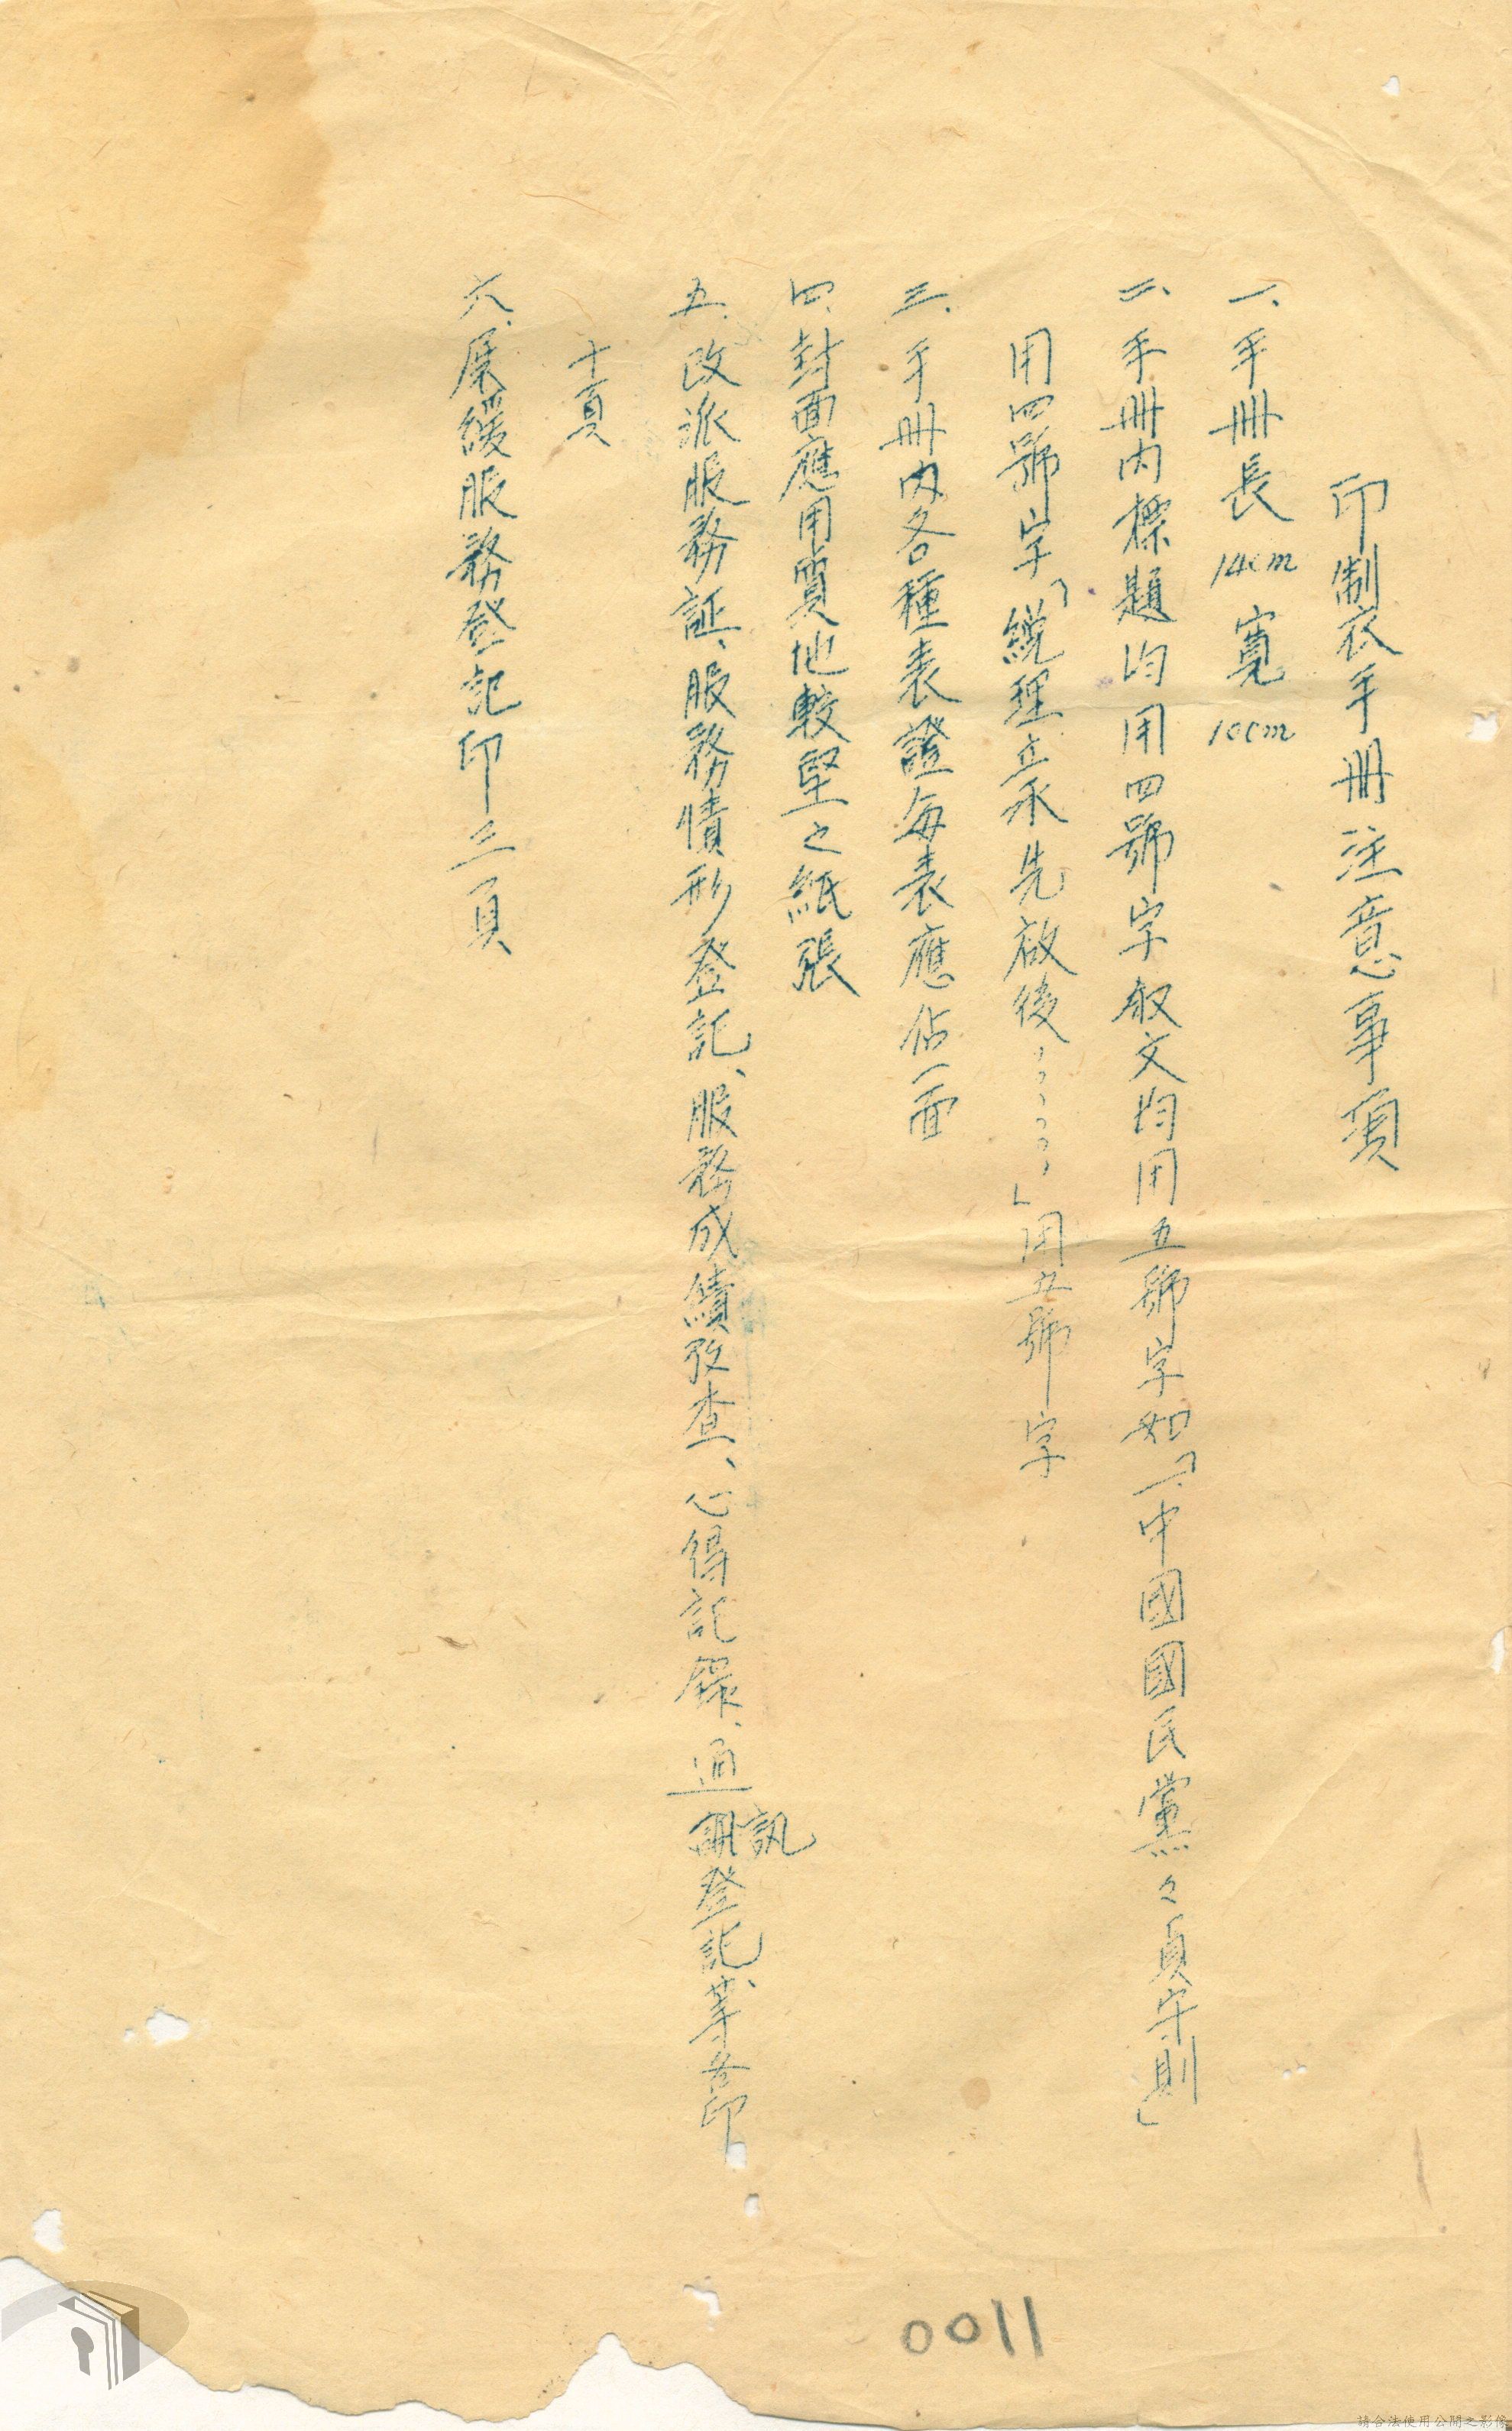 印制衣手冊注意事項
一、手冊長14cm寬10cm
二、手冊內標題均用四號字叙文均用五號字如「一、中國國民黨々員守則」
用四號字「総理立承先啟後、、、、、、」用五號字
三、手冊內各種表證每表應佔一面
四、封面應用質地較堅之紙張
五、改派服務証、服務情形登記、服務成績攷查、心得記錄、通訊登記、等各印
十頁
六、展緩服務登記印三頁
0011
請合法使用公開之影像